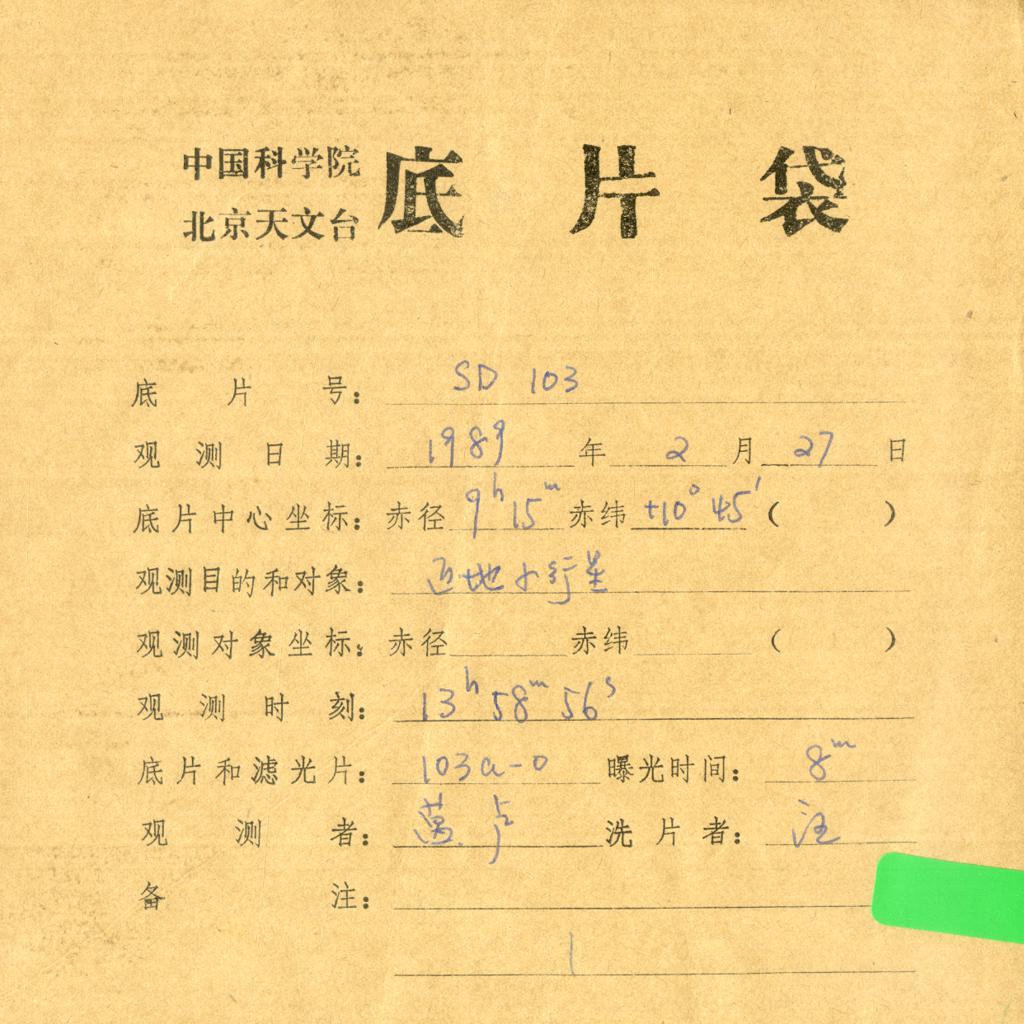 中国科学院
北京天文台
底片袋
底片号： SD 103
观测日期： 1989 年 2 月 27 日
底片中心坐标：赤径 9h 15m 赤纬 +10° 45′ （ ）
观测目的和对象： 近地小行星
观测对象坐标：赤径 赤纬 （ ）
观测时刻： 13h 58m 56s
底片和滤光片： 103a-O 曝光时间： 8m
观测者： 卢 洗片者： 汪
备注：